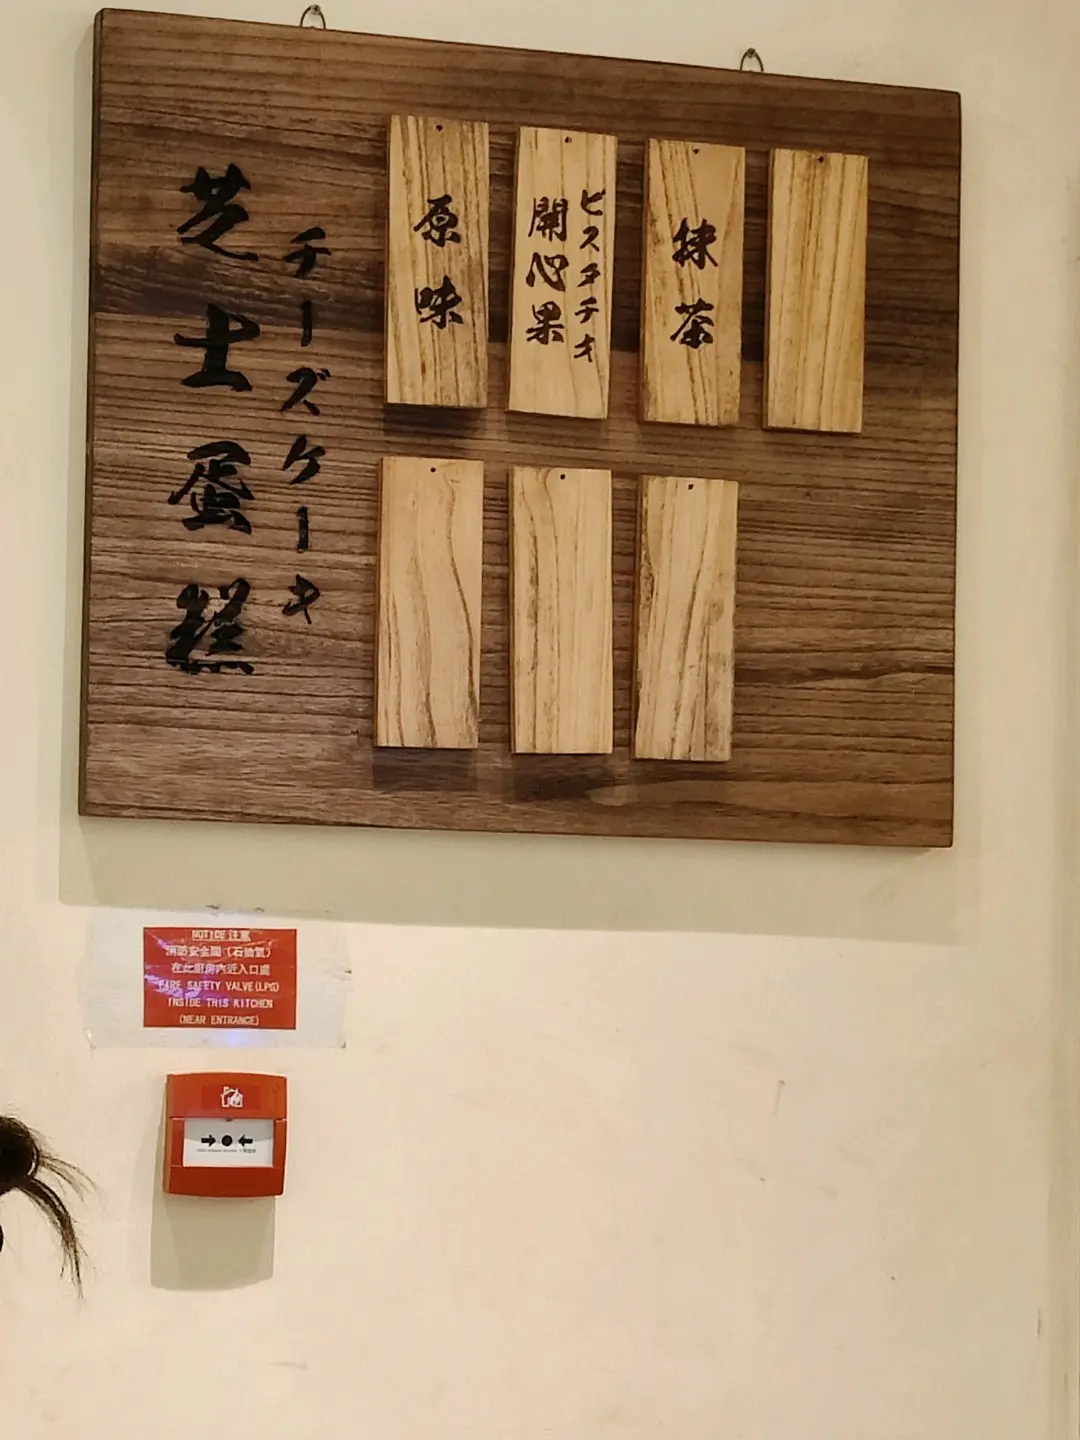 芝士蛋糕
チーズケーキ
原味
開心果
ピスタチオ
抹茶
NOTICE 注意
消防安全閥（石油氣）
在此廚房內近入口處
FIRE SAFETY VALVE(LPG)
INSIDE THIS KITCHEN
(NEAR ENTRANCE)